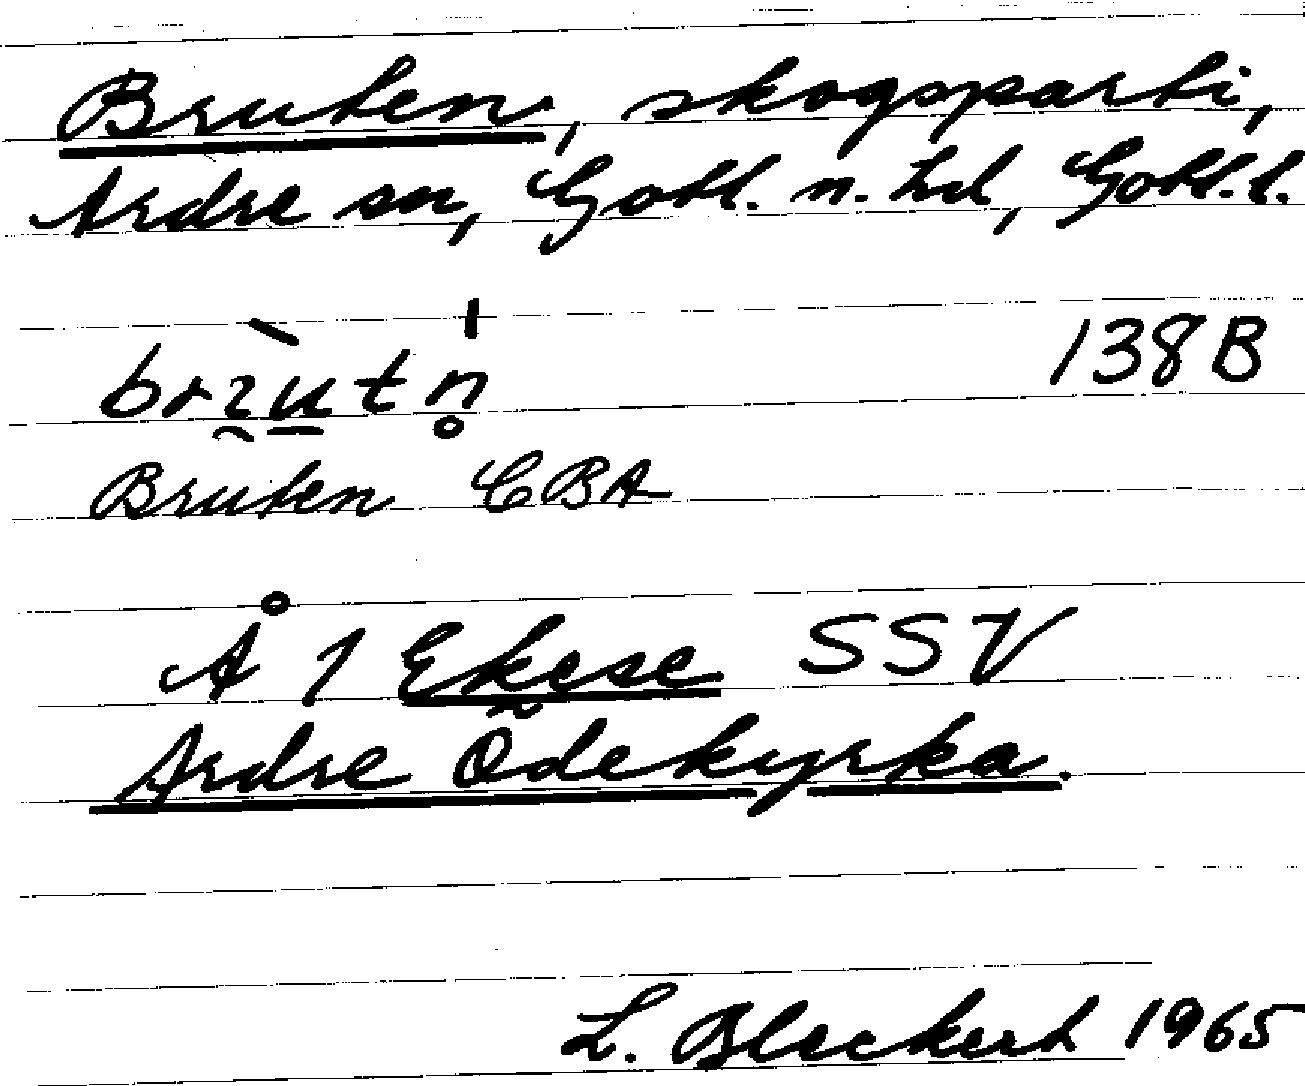 Bruten, skogsparti,
Ardre sn, Gotl. n. hd, Gotl. l.
138 B
Bruten CBA
Å 1 Ekese SSV
Ardre Ödekyrka.
L. Bleckert 1965